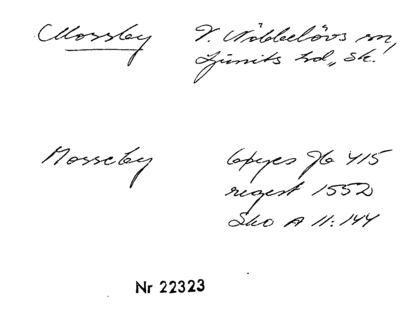 Mossby V. Nöbbelövs sn,
Ljunits hd, Sk.
Mosseby
415
regest 1552
Sko A 11:144
Nr 22323